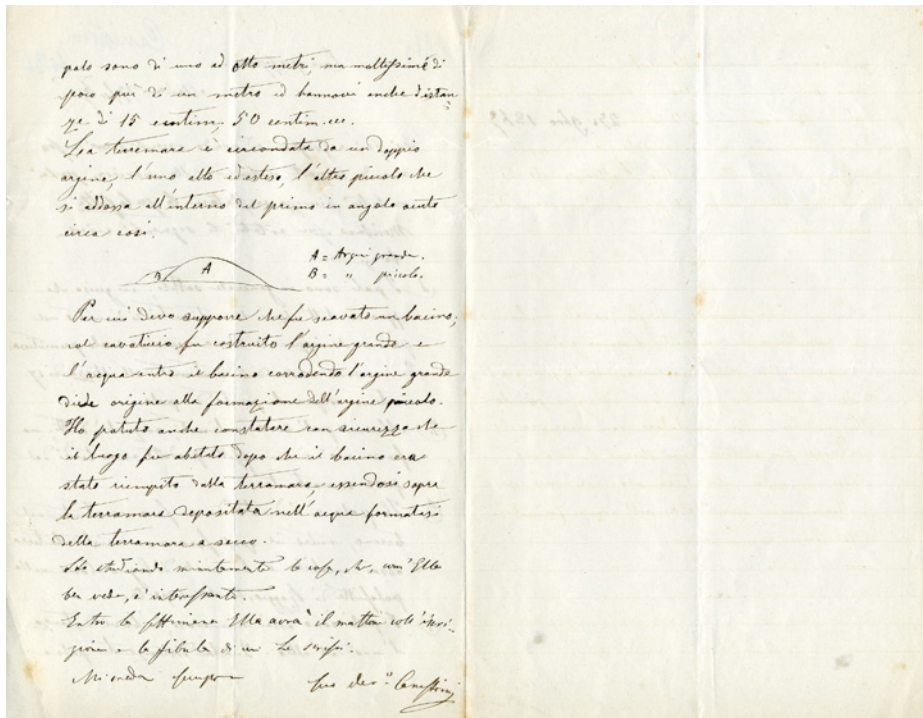 palo sono di uno ad otto metri, ma moltissimi di
poco più di un metro ed hannovi anche distan
ze di 15 centim, 50 centim. ecc.
La terremara è circondata da un doppio
argine, l'uno alto ed esteso, l'altro piccolo che
si addossa all'interno del primo in angolo acuto
circa così.
B A
A = Argine grande.
B = " piccolo.
Per cui devo supporre che fu scavato un bacino;
col cavaticcio fu costruito l'argine grande e
l'acqua entro il bacino corrodendo l'argine grande
diede origine alla formazione dell'argine piccolo.
Ho potuto anche constatare con sicurezza che
il luogo fu abitato dopo che il bacino era
stato riempito dalla terramara, essendosi sopra
la terramara depositata nell'acqua formatasi
della terramara a secco.
Sto studiando minutamente la cosa, che, com'Ella
ben vede, è interessante.
Entro la settimana Ella avrà il mattone coll'iscri-
zione e la fibula di cui Le scrissi.
Mi creda sempre
Suo dev.º Canestrini
29 9bre 1869